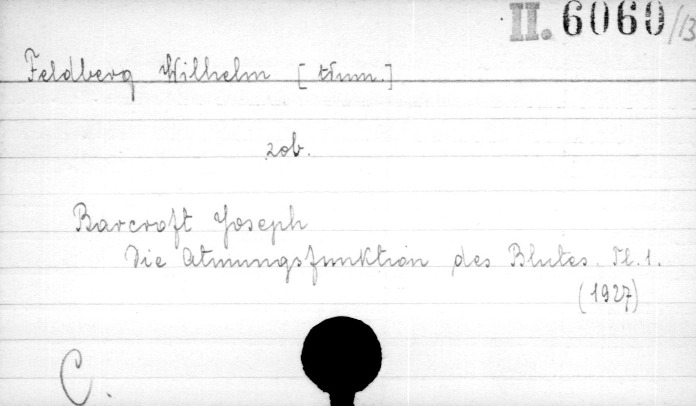 II. 6060/13
Feldberg Wilhelm [tłum.]
zob.
Barcroft Joseph
Die Atmungsfunktion des Blutes. Tl. 1.
(1927)
C.